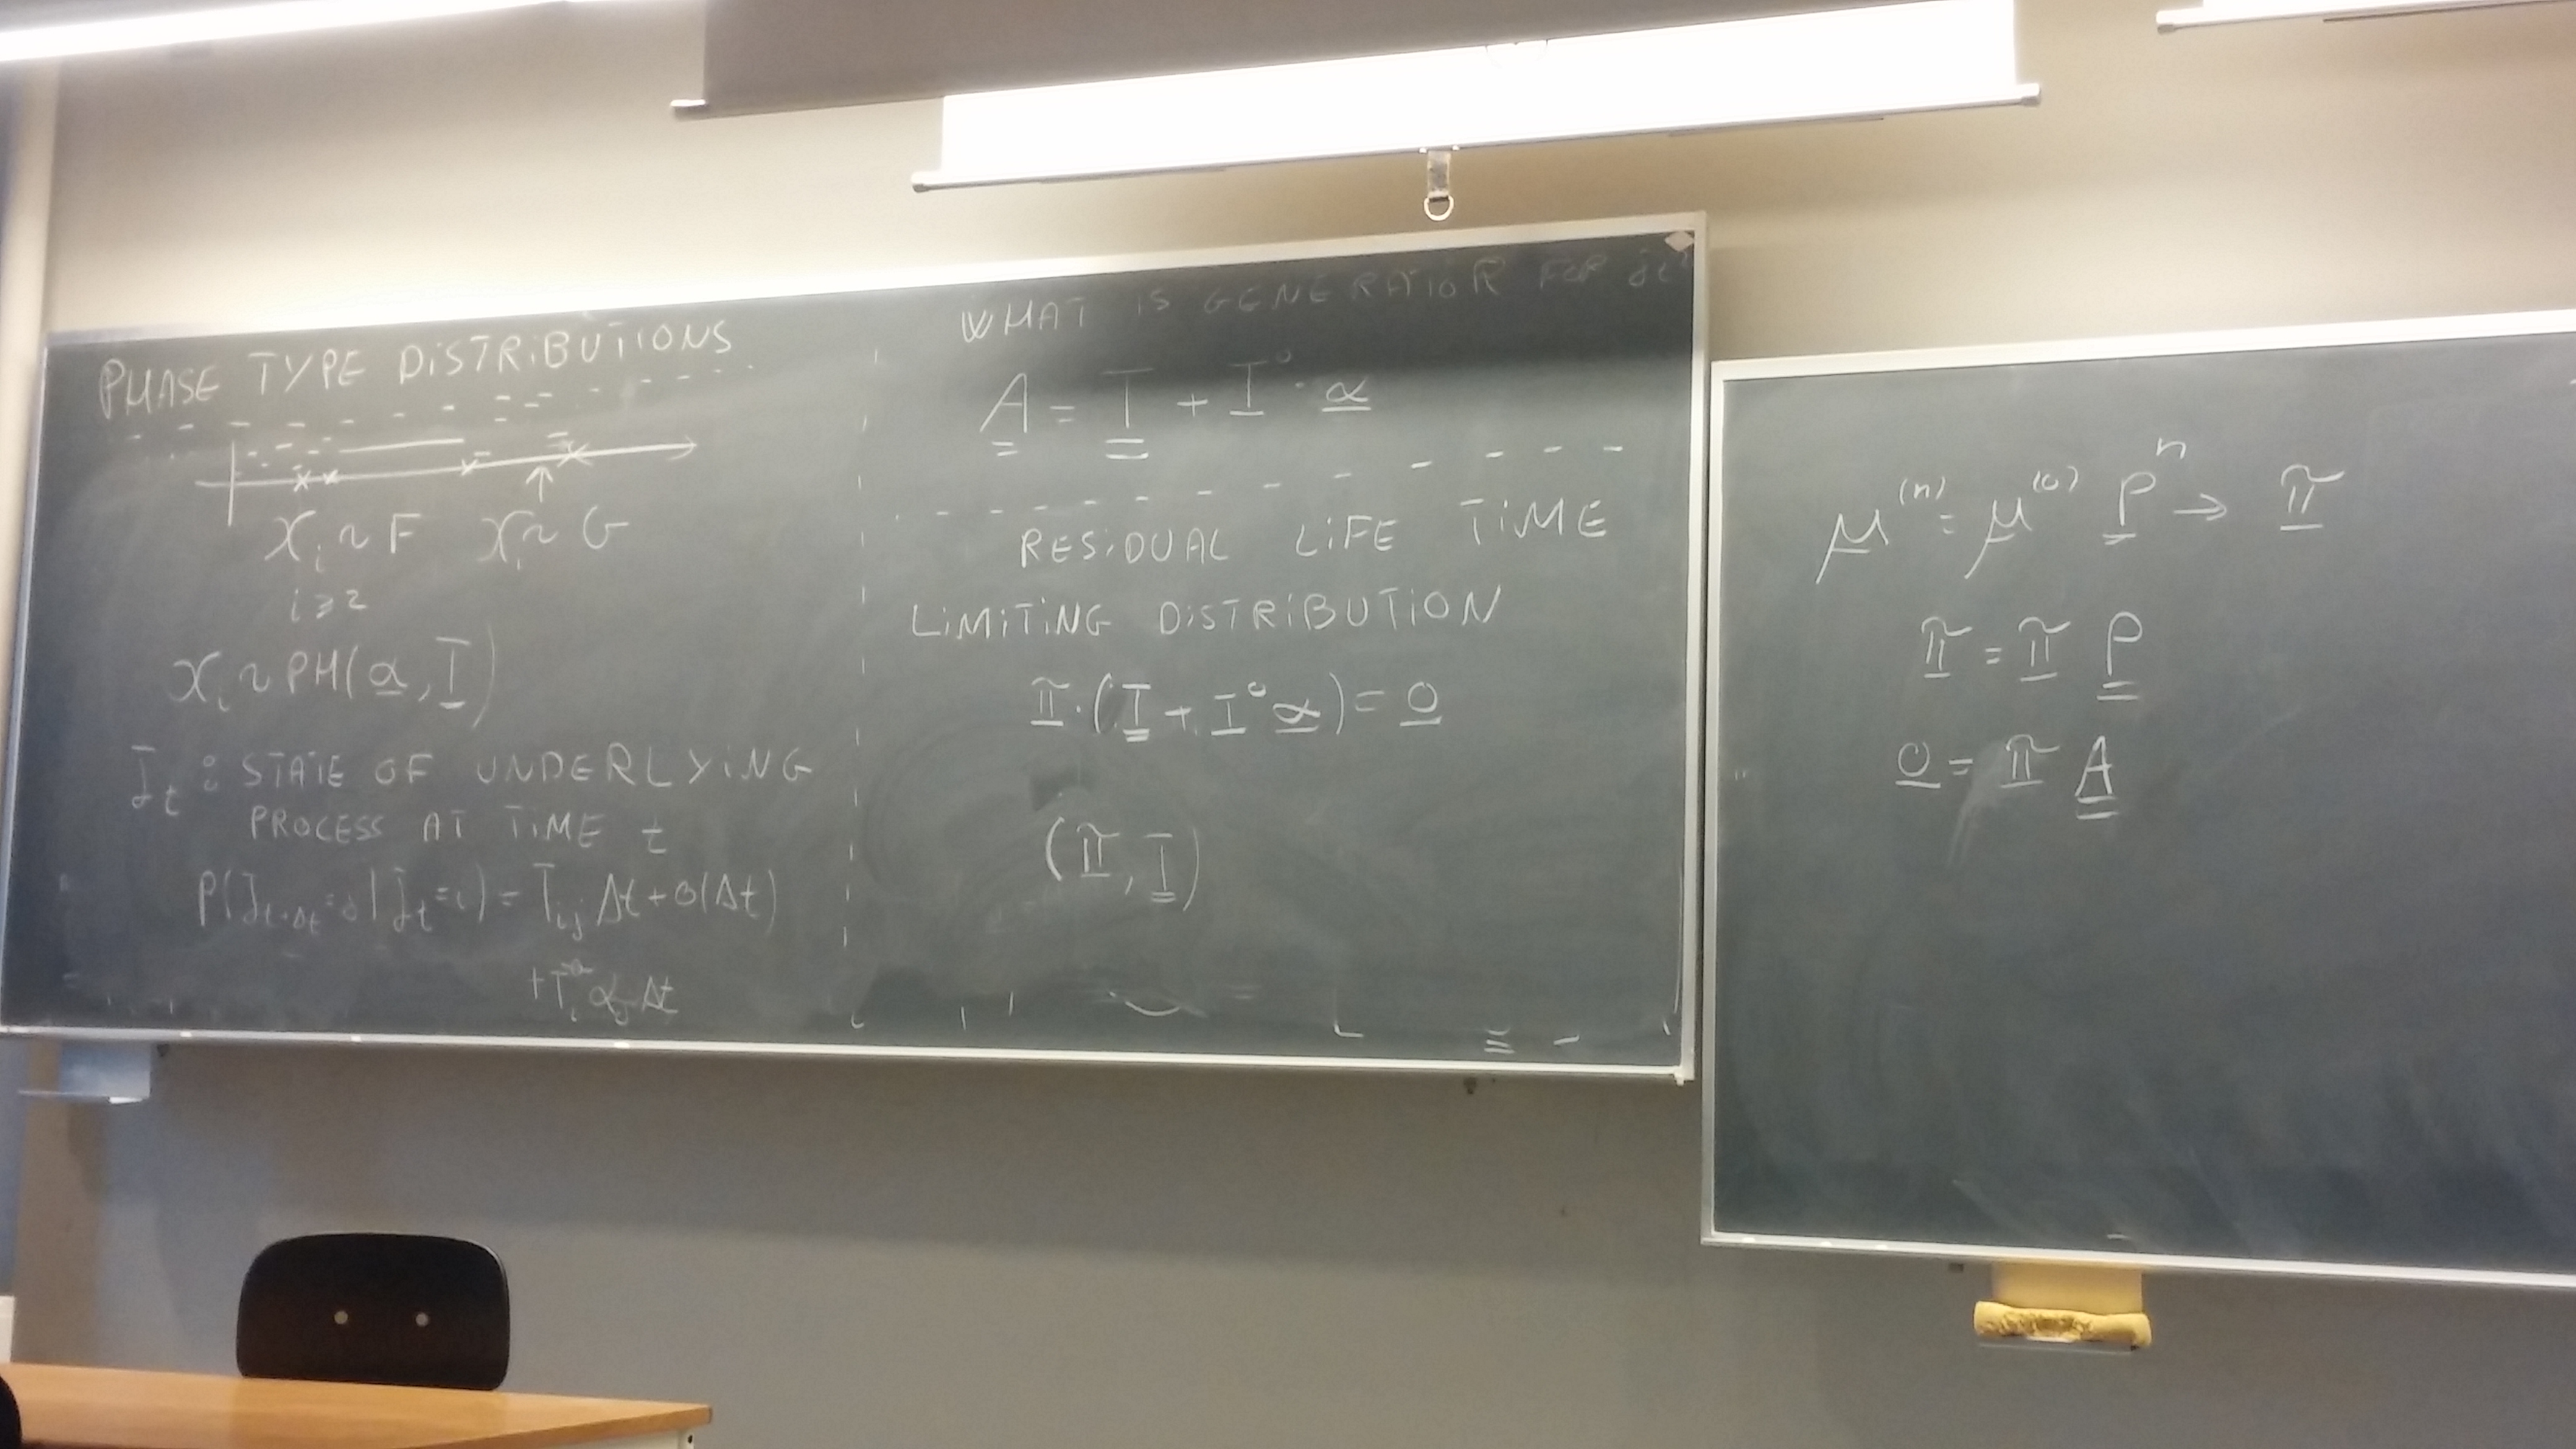 PHASE TYPE DISTRIBUTIONS
X_i ~ F   X_1 ~ G
i ≥ 2
X_i ~ PH(α, T)
J_t : STATE OF UNDERLYING
PROCESS AT TIME t
P(J_{t+Δt} = j | J_t = i) = T_{ij} Δt + o(Δt)
+ T_i^0 α_j Δt
WHAT IS GENERATOR FOR J_t
A = T + T^0 · α
RESIDUAL LIFE TIME
LIMITING DISTRIBUTION
π · (T + T^0 α) = 0
(π, T)
μ^(n) = μ^(0) P^n → π
π = π P
0 = π A